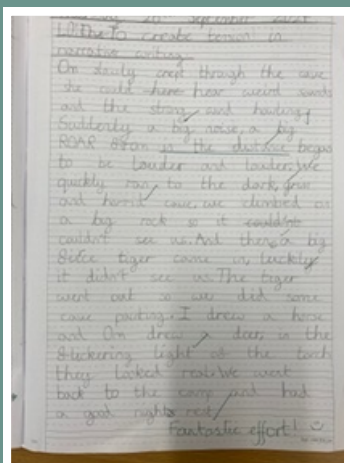 L.O: To create tension in
narrative writing.
Om slowly crept through the cave
she could here hear weird sounds
and the strong and howling
Suddenly a big noise, a big
ROAR from in the distance began
to be louder and louder. We
quickly ran to the dark,
and horrid cave, we climbed on
a big rock so it couldn't
couldn't see us. And then, a big
tiger came in, luckily
it didn't see us. The tiger
went out so we did some
cave painting. I drew a horse
and Om drew a deer, in the
flickering light of the torch
they looked real. We went
back to the camp and had
a good nights rest
Fantastic effort!